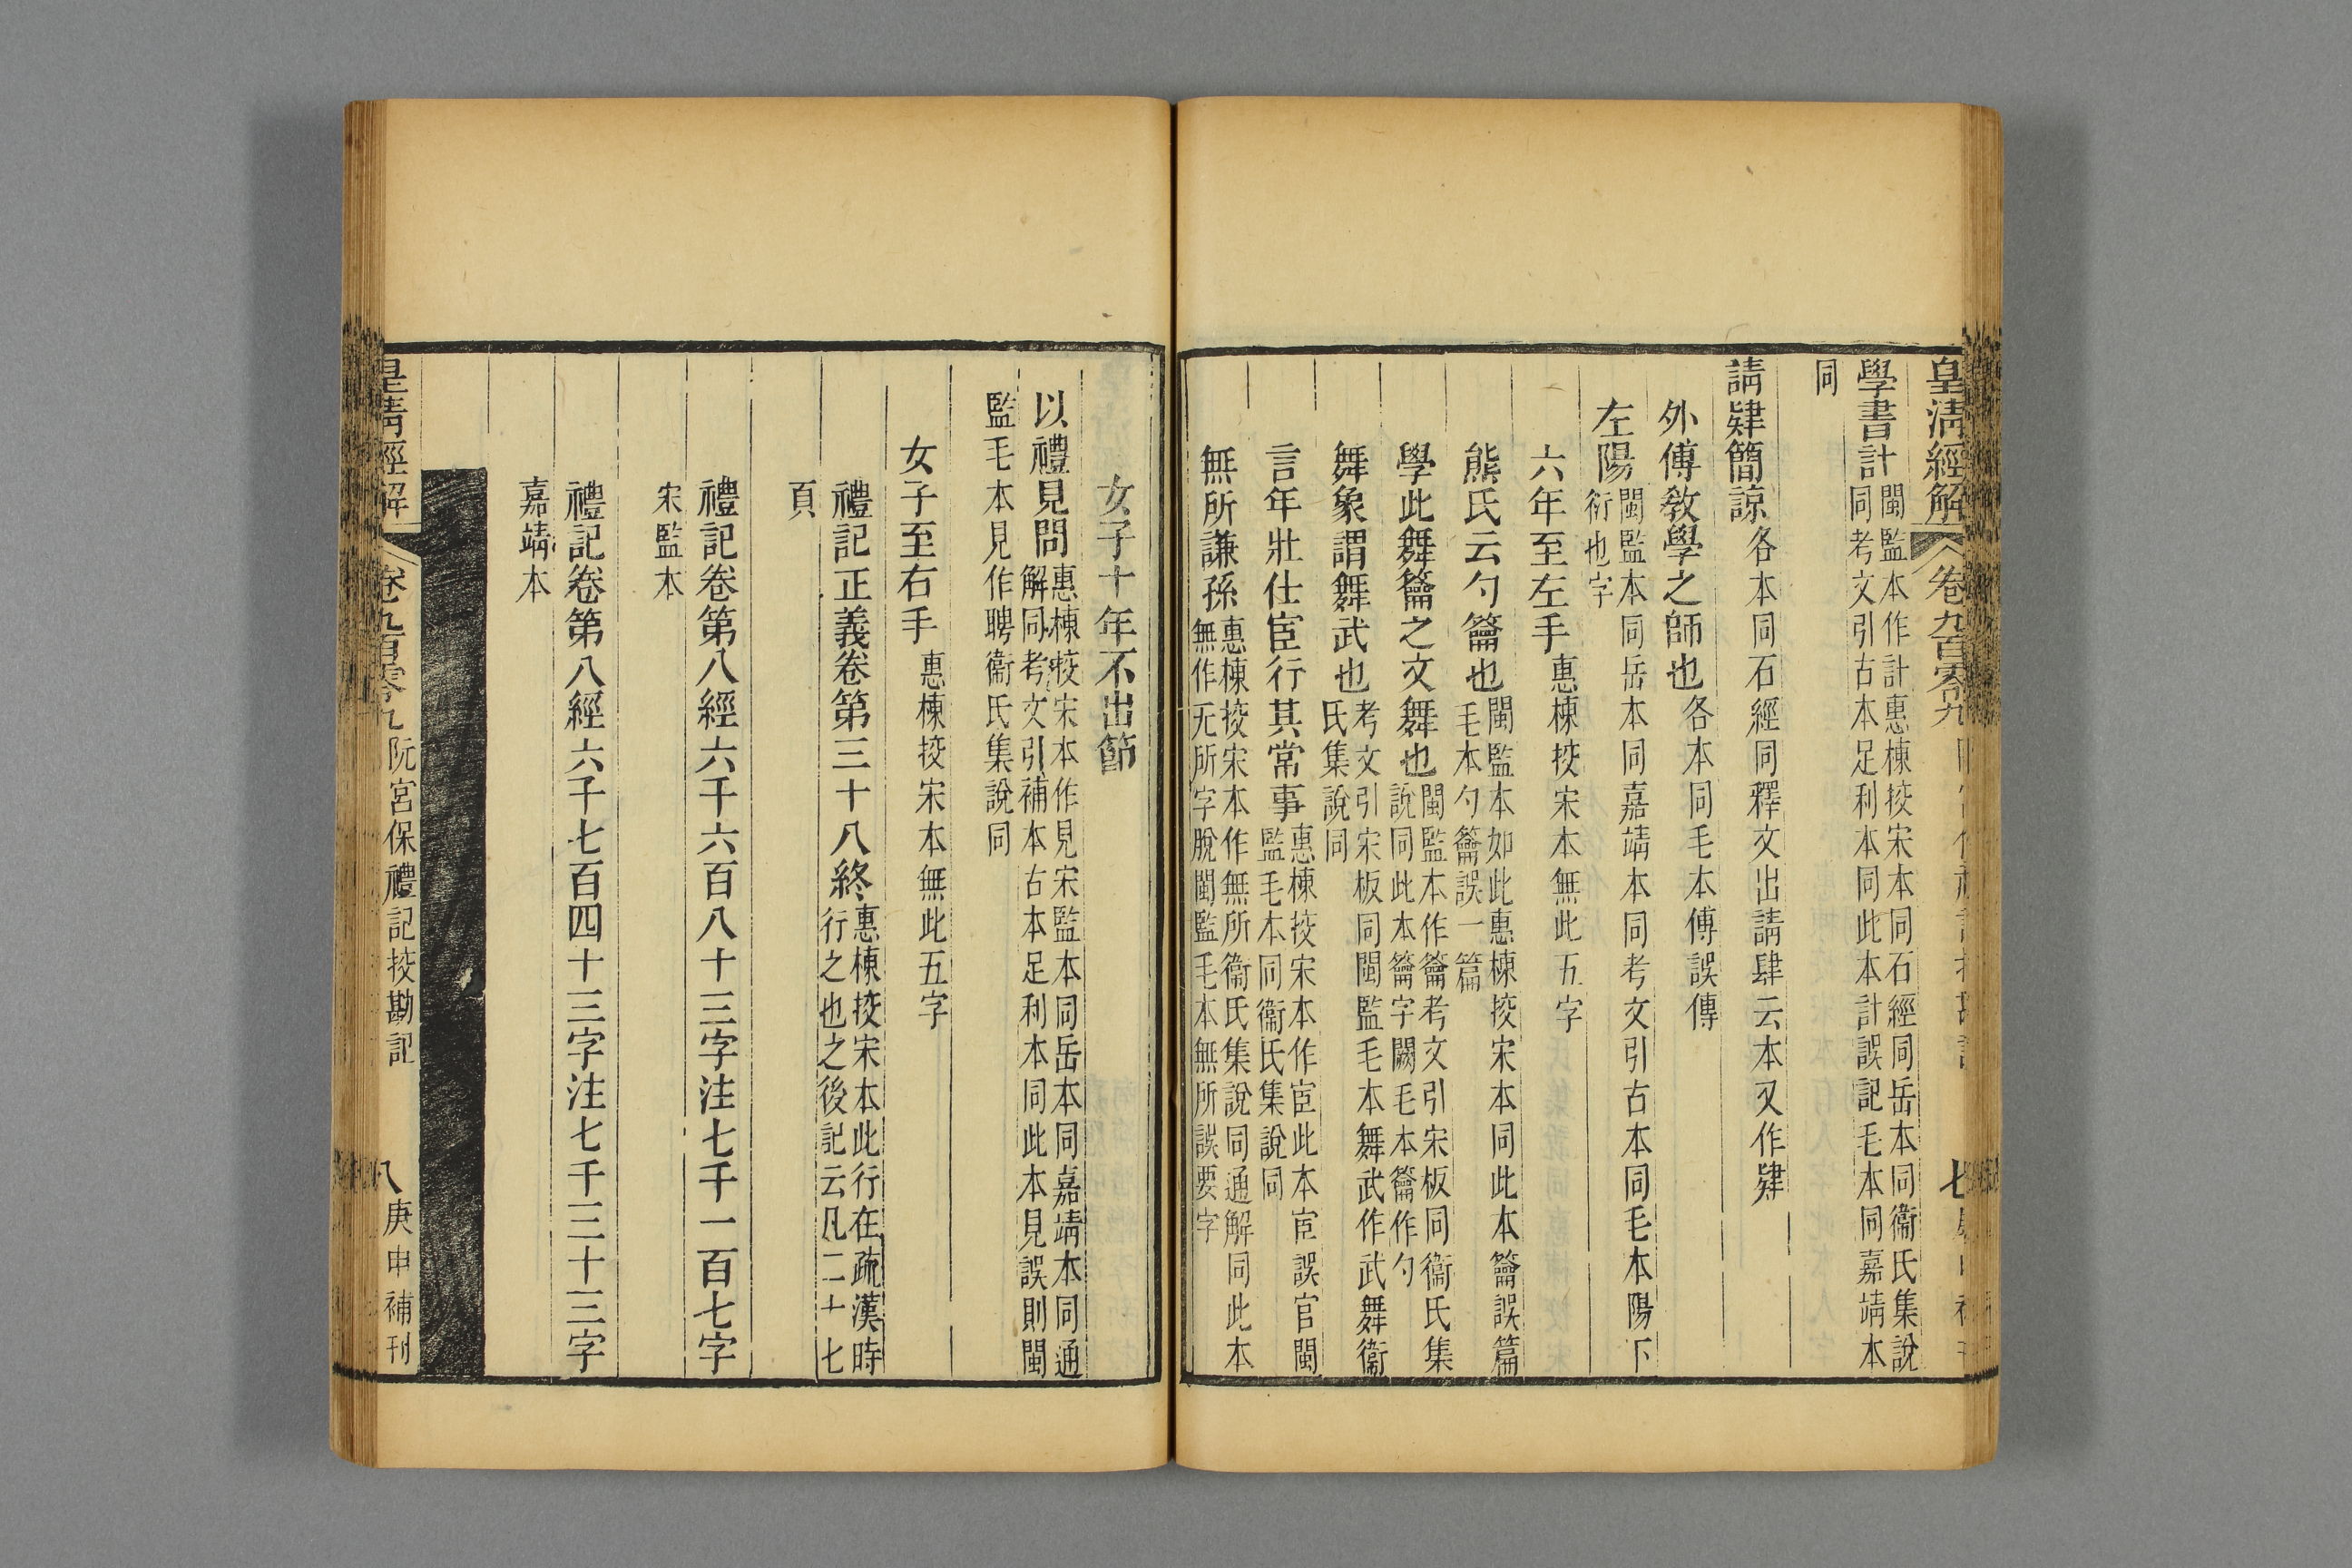 皇清經解 卷九百零九
七
學書計閩監本作計惠棟挍宋本同石經同岳本同衞氏集說
同考文引古本足利本同此本計誤記毛本同嘉靖本
同
請肄簡諒各本同石經同釋文出請肆云本又作肄
外傅敎學之師也各本同毛本傅誤傳
左陽閩監本同岳本同嘉靖本同考文引古本同毛本陽下
衍也字
六年至左手惠棟挍宋本無此五字
熊氏云勺籥也閩監本如此惠棟挍宋本同此本籥誤篇
毛本勺籥誤一篇
學此舞籥之文舞也閩監本作籥考文引宋板同衞氏集
說同此本籥字闕毛本籥作勺
舞象謂舞武也考文引宋板同閩監毛本舞武作武舞衞
氏集說同
言年壯仕宦行其常事惠棟挍宋本作宦此本宦誤官閩
監毛本同衞氏集說同
無所謙孫惠棟挍宋本作無所衞氏集說同通解同此本
無作无所字脫閩監毛本無所誤要字
女子十年不出節
以禮見問惠棟挍宋本作見宋監本同岳本同嘉靖本同通
解同考文引補本古本足利本同此本見誤則閩
監毛本見作聘衞氏集說同
女子至右手惠棟挍宋本無此五字
禮記正義卷第三十八終惠棟挍宋本此行在疏漢時
行之也之後記云凡二十七
頁
禮記卷第八經六千六百八十三字注七千一百七字
宋監本
禮記卷第八經六千七百四十三字注七千三十三字
嘉靖本
皇清經解 卷九百零九 阮宮保禮記挍勘記
八 庚申補刊